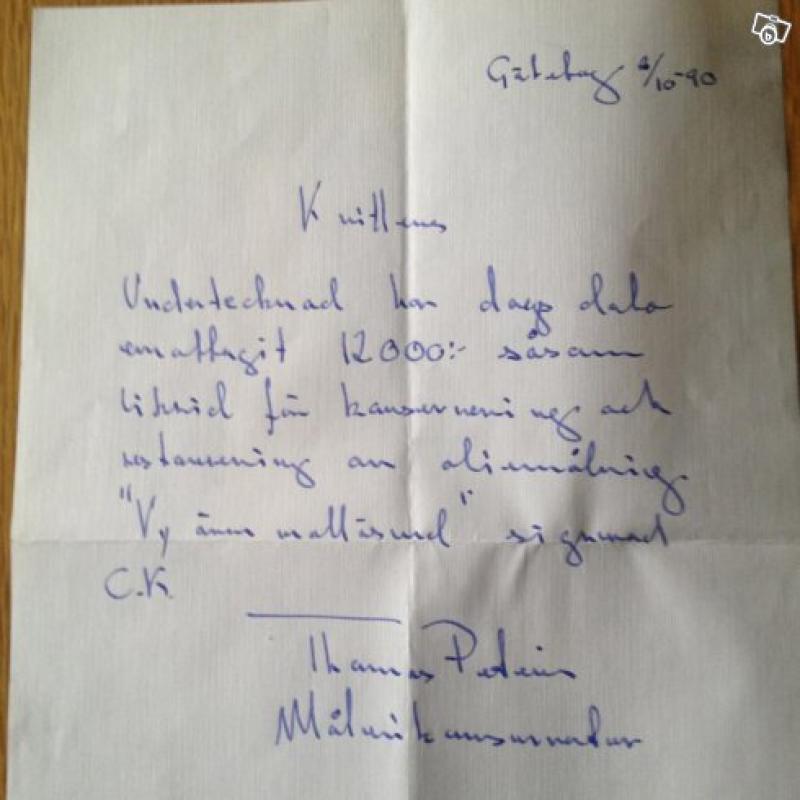 Göteborg /10-90
Kvittens
Undertecknad har dags dato
emottagit 12000:- såsom
likvid för konservering och
restaurering av oljemålning.
"Vy över vattäsund" signerad
C.K.
Thomas
Målerikonservator